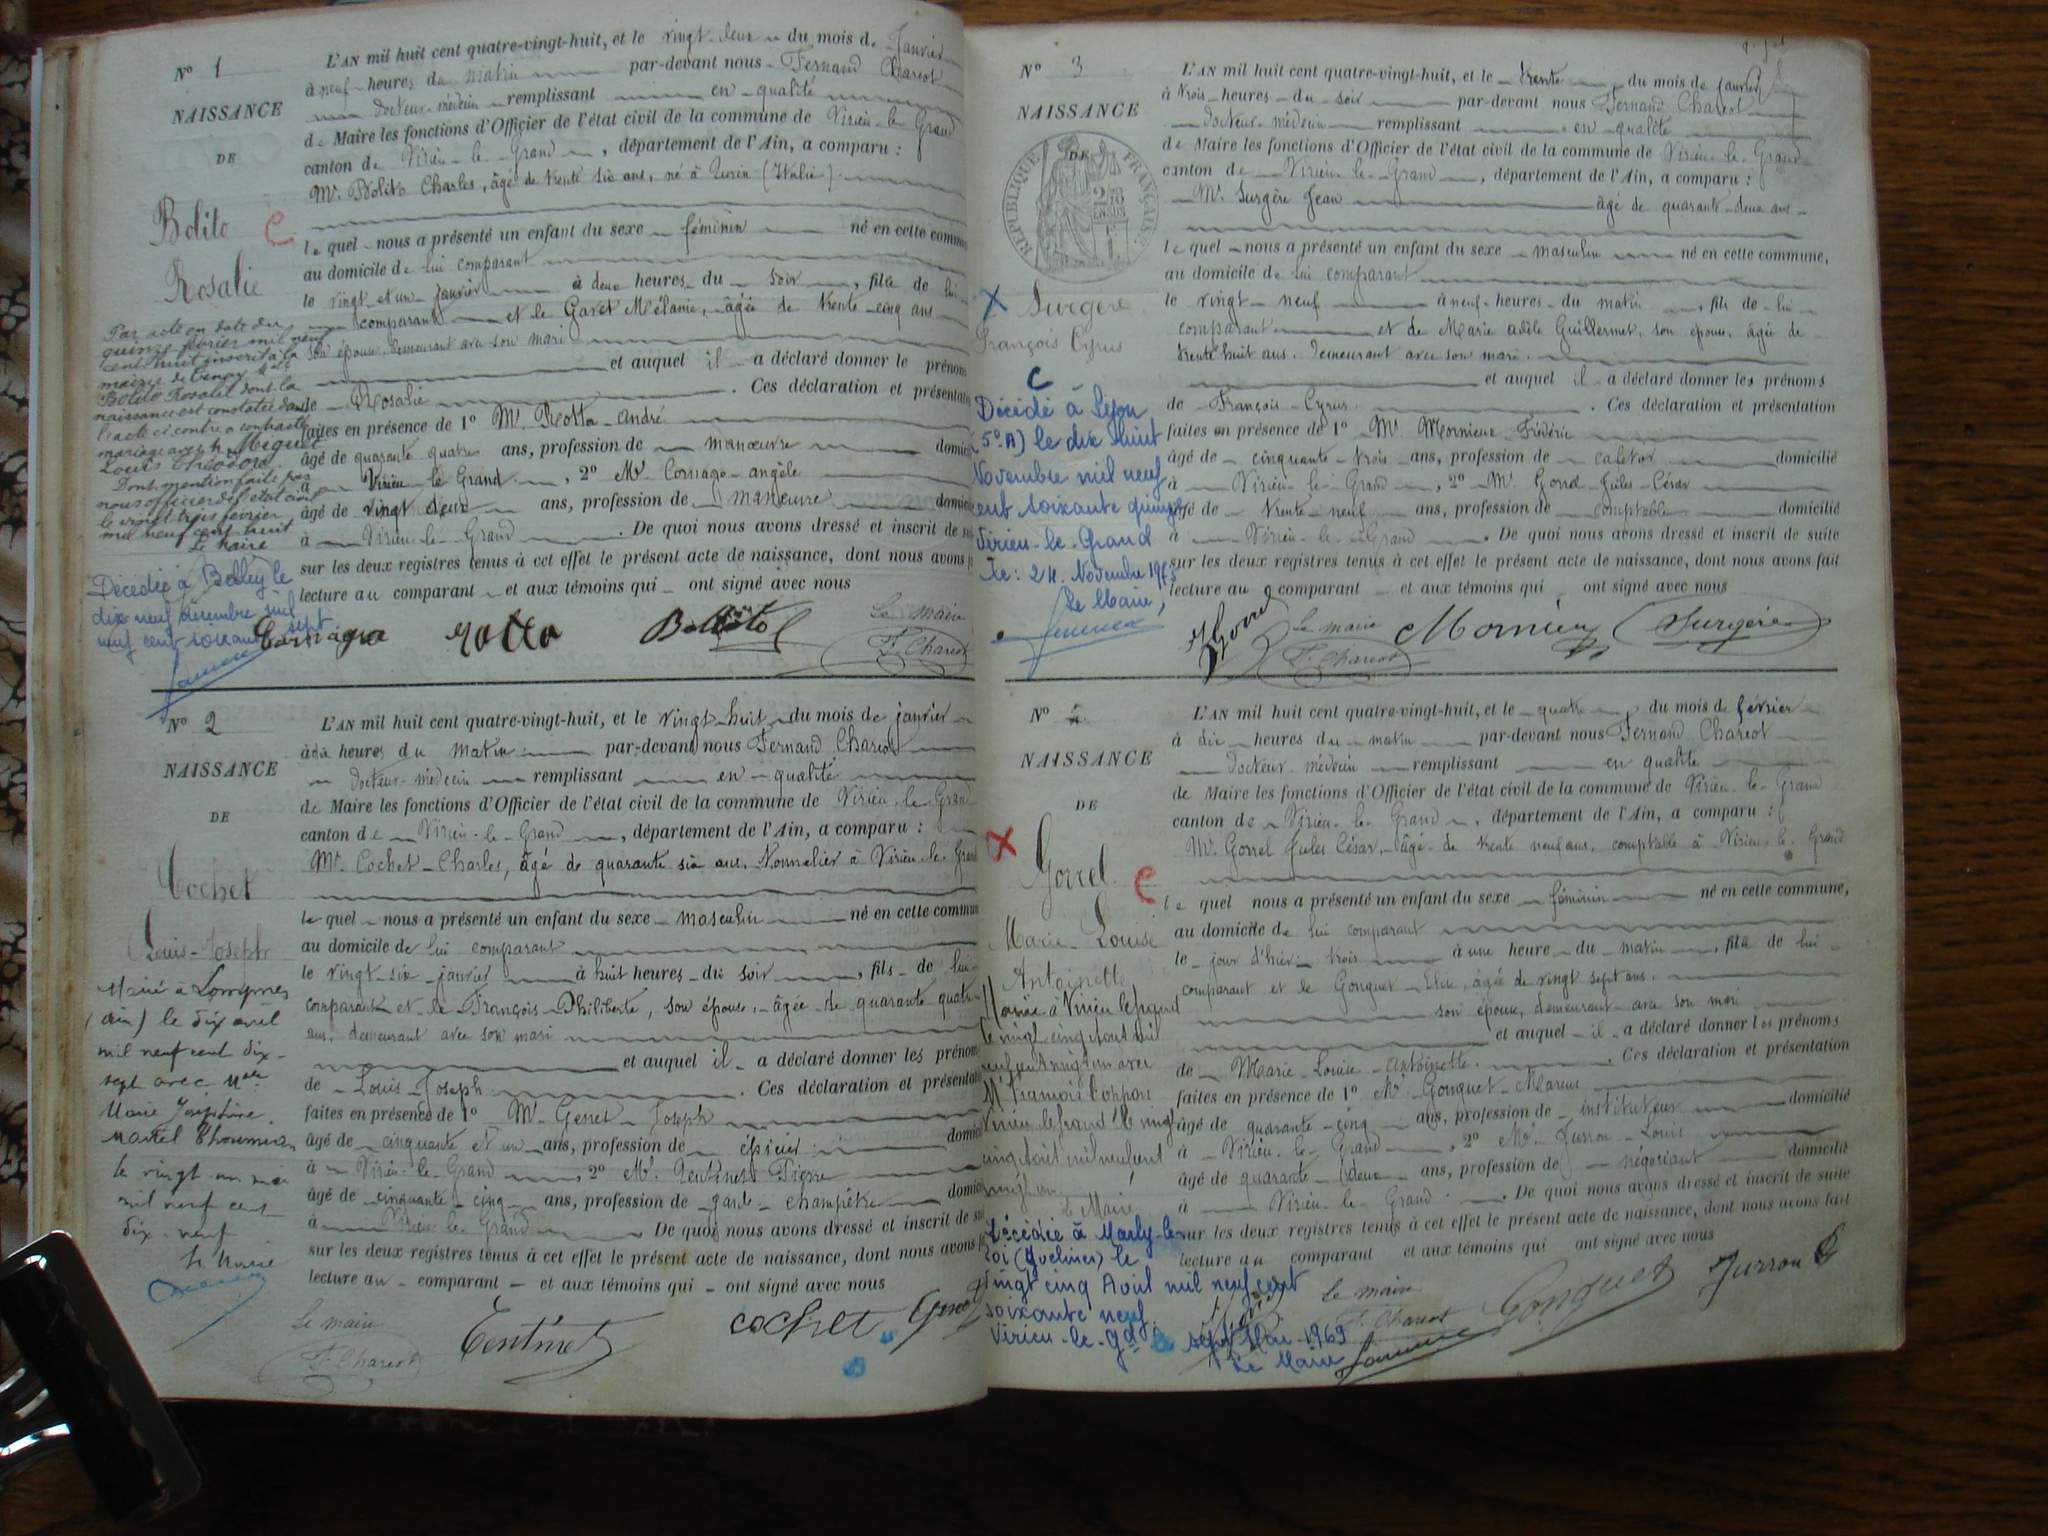 N° 1
NAISSANCE
DE
Bolito
Rosalie
Par acte en date du
quinze février mil neuf
cent huit inscrit à la
mairie de Tenay Mlle
Bolito Rosalie dont la
naissance est constatée dans
l'acte ci contre a contracté
mariage avec M. Miguet
Louis Théodore
Dont mention faite par
nous officier de l'état civil
le vingt trois février
mil neuf cent huit
Le Maire
Décédée à Belley le
dix neuf décembre mil
neuf cent soixante sept
L'AN mil huit cent quatre-vingt-huit, et le vingt-deux du mois de Janvier
à neuf heures du matin par-devant nous Fernand Charcot
docteur-médecin remplissant en qualité
de Maire les fonctions d'Officier de l'état civil de la commune de Virieu-le-Grand
canton de Virieu-le-Grand, département de l'Ain, a comparu :
Mr. Bolito Charles, âgé de trente six ans, né à Turin (Italie)
le quel nous a présenté un enfant du sexe féminin né en cette commun
au domicile de lui comparant
le vingt et un janvier à deux heures du soir, fille de lui
comparant et de Gavet Mélanie, âgée de trente-cinq ans
son épouse, demeurant avec son mari
et auquel il a déclaré donner le prénom
de Rosalie. Ces déclaration et présentation
faites en présence de 1° Mr. Rotta André
âgé de quarante quatre ans, profession de manœuvre domici
à Virieu le Grand, 2° Mr Cornago angèle
âgé de vingt deux ans, profession de manœuvre domici
à Virieu-le-Grand. De quoi nous avons dressé et inscrit de su
sur les deux registres tenus à cet effet le présent acte de naissance, dont nous avons f
lecture au comparant et aux témoins qui ont signé avec nous
Le maire
Cornago Rotta Bolito F. Charcot
N° 2
NAISSANCE
DE
Cochet
Louis-Joseph
Marié à Lompnes
(ain) le dix avril
mil neuf cent dix-
sept avec Mlle
Marie Joséphine
Martel Thoumian
le vingt un mai
mil neuf cent
dix-neuf
Le Maire
L'AN mil huit cent quatre-vingt-huit, et le vingt-huit du mois de janvier
à dix heures du matin par-devant nous Fernand Charcot
docteur-médecin remplissant en qualité
de Maire les fonctions d'Officier de l'état civil de la commune de Virieu-le-Grand
canton de Virieu-le-Grand, département de l'Ain, a comparu :
Mr. Cochet-Charles, âgé de quarante six ans, Journalier à Virieu-le-Grand
le quel nous a présenté un enfant du sexe masculin né en cette commun
au domicile de lui comparant
le vingt-six janvier à huit heures du soir, fils de lui-
comparant et de François-Philiberte, son épouse, âgée de quarante quatre
ans, demeurant avec son mari
et auquel il a déclaré donner les prénom
de Louis-Joseph. Ces déclaration et présentat
faites en présence de 1° Mr. Genet Joseph
âgé de cinquante et un ans, profession de épicier domici
à Virieu-le-Grand, 2° Mr. Tentinet Pierre
âgé de cinquante-cinq ans, profession de garde-champêtre domici
à Virieu-le-Grand. De quoi nous avons dressé et inscrit de su
sur les deux registres tenus à cet effet le présent acte de naissance, dont nous avons f
lecture au comparant et aux témoins qui ont signé avec nous
Le maire
F. Charcot Tentinet cochet Genet
N° 3
NAISSANCE
DE
RÉPUBLIQUE FRANÇAISE
Surgère
François Cyrus
C
Décédé à Lyon
(5e A) le dix huit
Novembre mil neuf
cent soixante quinze
Virieu-le-Grand
le : 24 Novembre 1975
Le Maire,
L'AN mil huit cent quatre-vingt-huit, et le trente du mois de janvier
à trois heures du soir par-devant nous Fernand Charcot
docteur-médecin remplissant en qualité
de Maire les fonctions d'Officier de l'état civil de la commune de Virieu-le-Grand
canton de Virieu-le-Grand, département de l'Ain, a comparu :
Mr. Surgère Jean âgé de quarante-deux ans
le quel nous a présenté un enfant du sexe masculin né en cette commune,
au domicile de lui comparant
le vingt-neuf à neuf heures du matin, fils de lui
comparant et de Marie adèle Guillermet, son épouse, âgée de
trente huit ans, demeurant avec son mari.
et auquel il a déclaré donner les prénoms
de François-Cyrus. Ces déclaration et présentation
faites en présence de 1° Mr. Mornieux Frédéric
âgé de cinquante-trois ans, profession de cafetier domicilié
à Virieu-le-Grand, 2° Mr. Gorrel Jules-César
âgé de trente-neuf ans, profession de comptable domicilié
à Virieu-le-Grand. De quoi nous avons dressé et inscrit de suite
sur les deux registres tenus à cet effet le présent acte de naissance, dont nous avons fait
lecture au comparant et aux témoins qui ont signé avec nous
Le maire
Gorrel F. Charcot Mornieux Surgère
N° 4
NAISSANCE
DE
Gorrel
Marie-Louise
Antoinette
Mariée à Virieu le grand
le vingt cinq août mil
neuf cent vingt un avec
M. François
Virieu le grand le vingt
cinq août mil neuf cent
vingt un
Le Maire
Décédée à Marly-le-
roi (Yvelines) le
vingt cinq Avril mil neuf cent
soixante neuf.
Virieu-le-Gd le sept Mai 1969
Le Maire
L'AN mil huit cent quatre-vingt-huit, et le quatre du mois de février
à dix heures du matin par-devant nous Fernand Charcot
docteur-médecin remplissant en qualité
de Maire les fonctions d'Officier de l'état civil de la commune de Virieu-le-Grand
canton de Virieu-le-Grand, département de l'Ain, a comparu :
Mr. Gorrel Jules César, âgé de trente neuf ans, comptable à Virieu-le-Grand
le quel nous a présenté un enfant du sexe féminin né en cette commune,
au domicile de lui comparant
le jour d'hier trois à une heure du matin, fille de lui
comparant et de Gonguet, âgée de vingt sept ans.
son épouse, demeurant avec son mari
et auquel il a déclaré donner les prénoms
de Marie-Louise-Antoinette. Ces déclaration et présentation
faites en présence de 1° Mr Gonguet-Marius
âgé de quarante-cinq ans, profession de instituteur domicilié
à Virieu-le-Grand, 2° Mr. Jurron-Louis
âgé de quarante deux ans, profession de négociant domicilié
à Virieu-le-Grand. De quoi nous avons dressé et inscrit de suite
sur les deux registres tenus à cet effet le présent acte de naissance, dont nous avons fait
lecture au comparant et aux témoins qui ont signé avec nous
Le maire
F. Charcot Gonguet Jurron